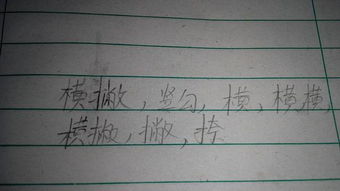 横撇，竖勾，横，横横，
横撇，撇，捺